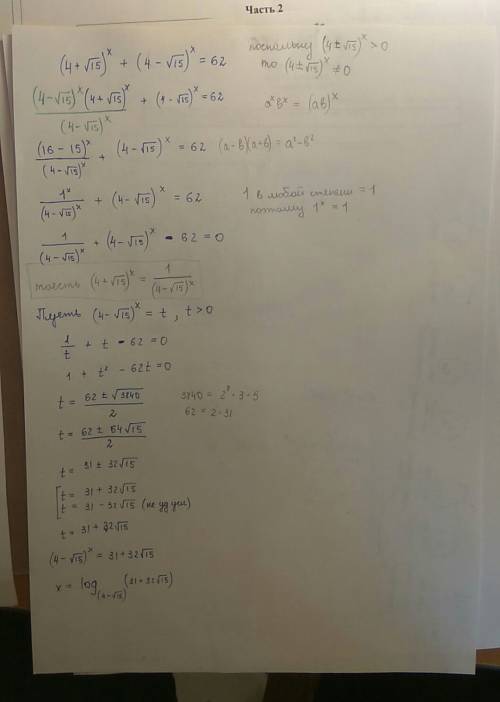 Часть 2
(4+√15)^x + (4-√15)^x = 62
поскольку (4±√15)^x > 0
то (4±√15)^x ≠ 0
(4-√15)^x (4+√15)^x / (4-√15)^x + (4-√15)^x = 62
a^x b^x = (ab)^x
(16-15)^x / (4-√15)^x + (4-√15)^x = 62
(a-b)(a+b) = a²-b²
1^x / (4-√15)^x + (4-√15)^x = 62
1 в любой степени = 1
поэтому 1^x = 1
1 / (4-√15)^x + (4-√15)^x - 62 = 0
тоесть (4+√15)^x = 1 / (4-√15)^x
Пусть (4-√15)^x = t, t>0
1/t + t - 62 = 0
1 + t² - 62t = 0
t = (62 ± √3840) / 2
3840 = 2⁸·3·5
62 = 2·31
t = (62 ± 64√15) / 2
t = 31 ± 32√15
[ t = 31 + 32√15
t = 31 - 32√15 (не уд усл)
t = 31 + 32√15
(4-√15)^x = 31+32√15
x = log_(4-√15) (31+32√15)